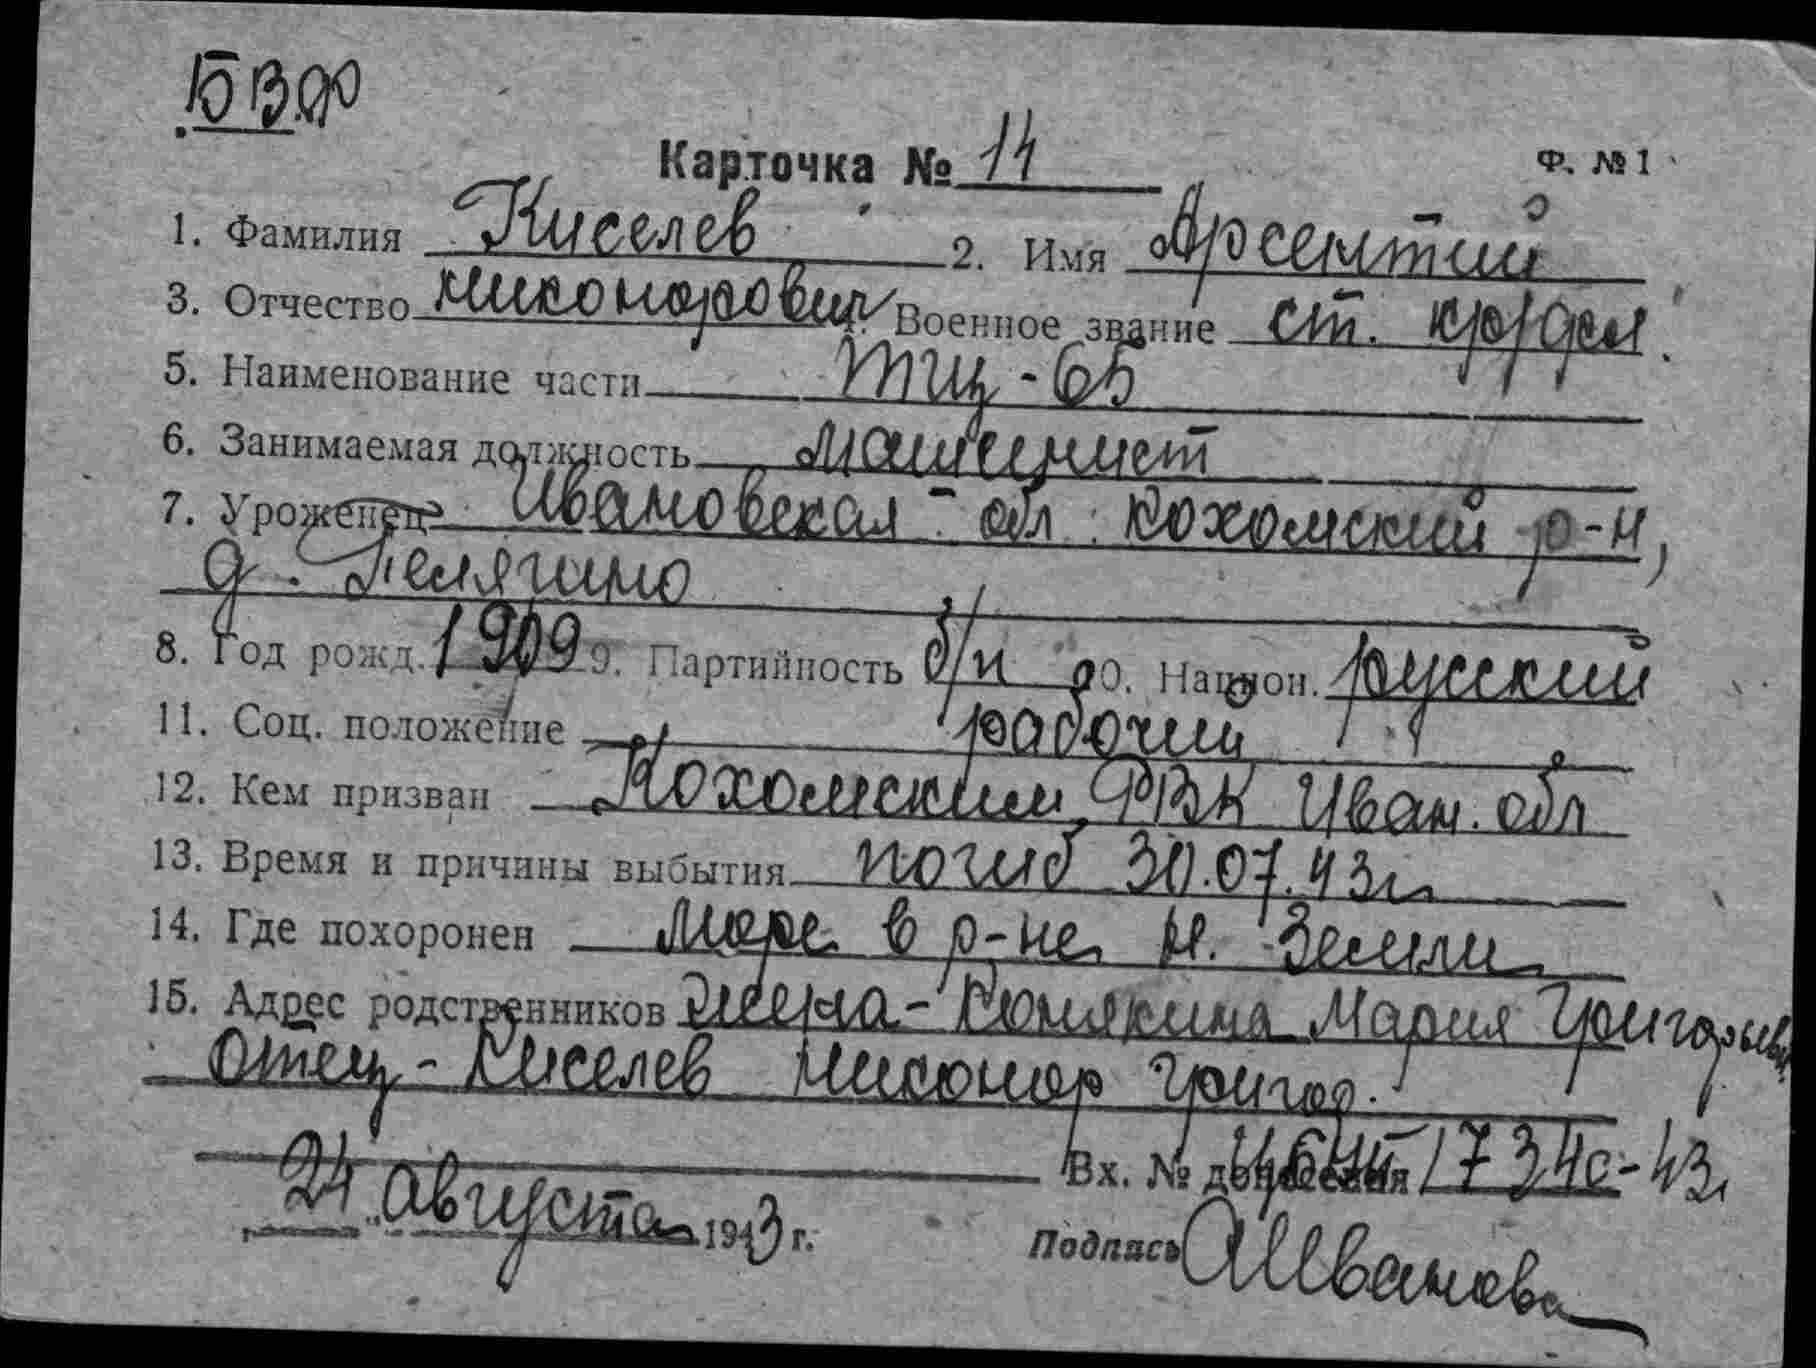 БВФ
Карточка № 14 Ф. № 1
1. Фамилия Киселев 2. Имя Арсентий
3. Отчество Никонорович 4. Военное звание ст. кр/фл.
5. Наименование части ТЩ-65
6. Занимаемая должность машинист
7. Уроженец Ивановская обл. Кохомский р-н,
д. Пелягино
8. Год рожд. 1909 9. Партийность б/п 10. Национ. русский
11. Соц. положение рабочий
12. Кем призван Кохомским РВК Иван. обл
13. Время и причины выбытия погиб 30.07.43г
14. Где похоронен море в р-не Н. Земли
15. Адрес родственников жена - Конякина Мария Григорьев.
Отец - Киселев Никонор Григор.
Вх. № донесения 1734с-43г
24 августа 1943 г. Подпись АИванова